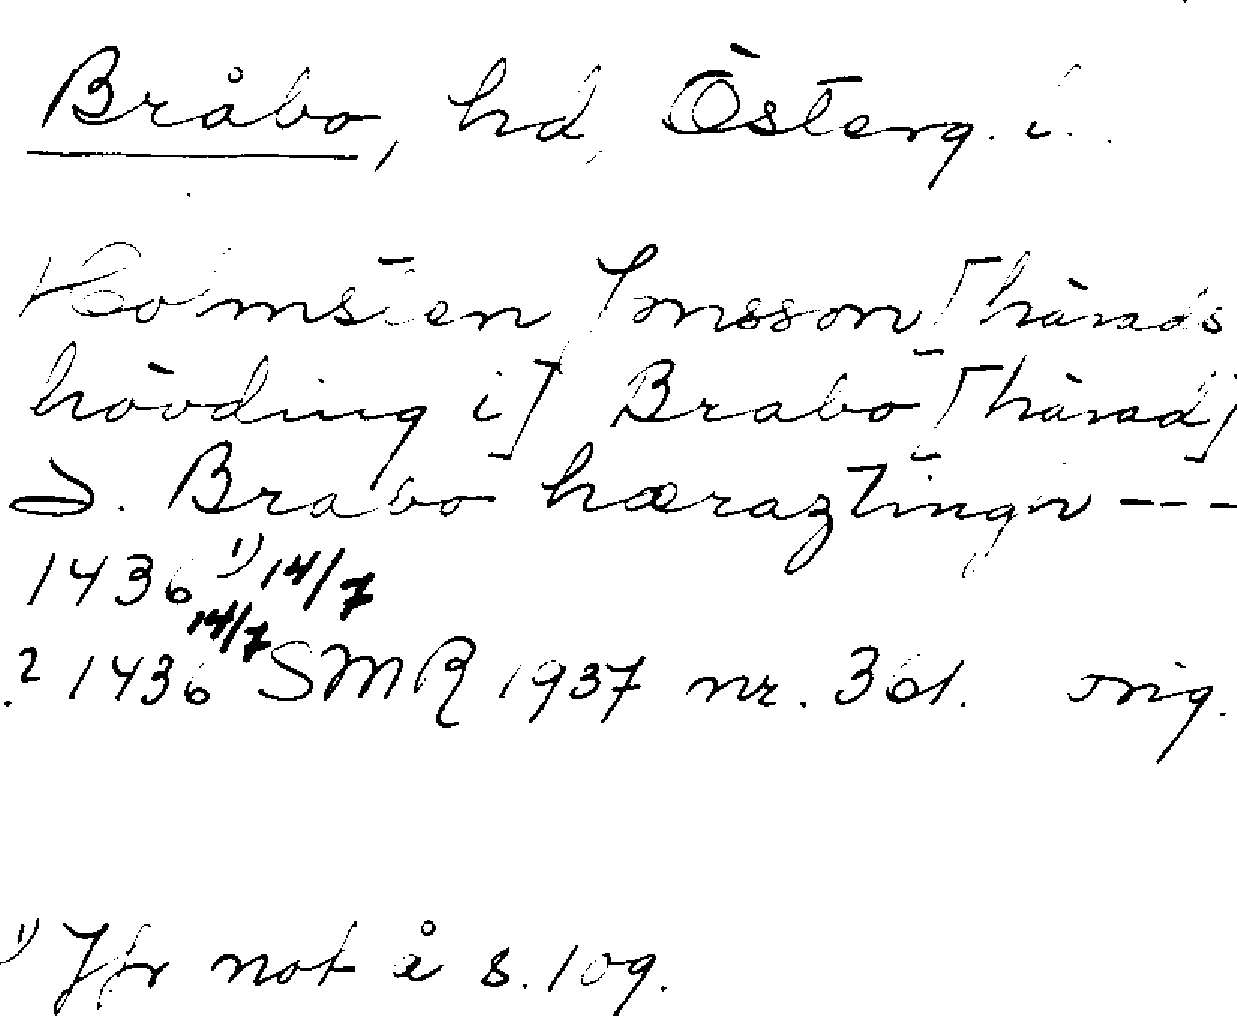 Bråbo, hd, Österg. l.
Holmsten Jonsson [härads
hövding i] Brabo [härad]
d. Brabo hæraztingh ---
1436 1) 14/7
2 1436 14/7 SMR 1937 nr. 361. orig.
1) Jfr not å s. 109.